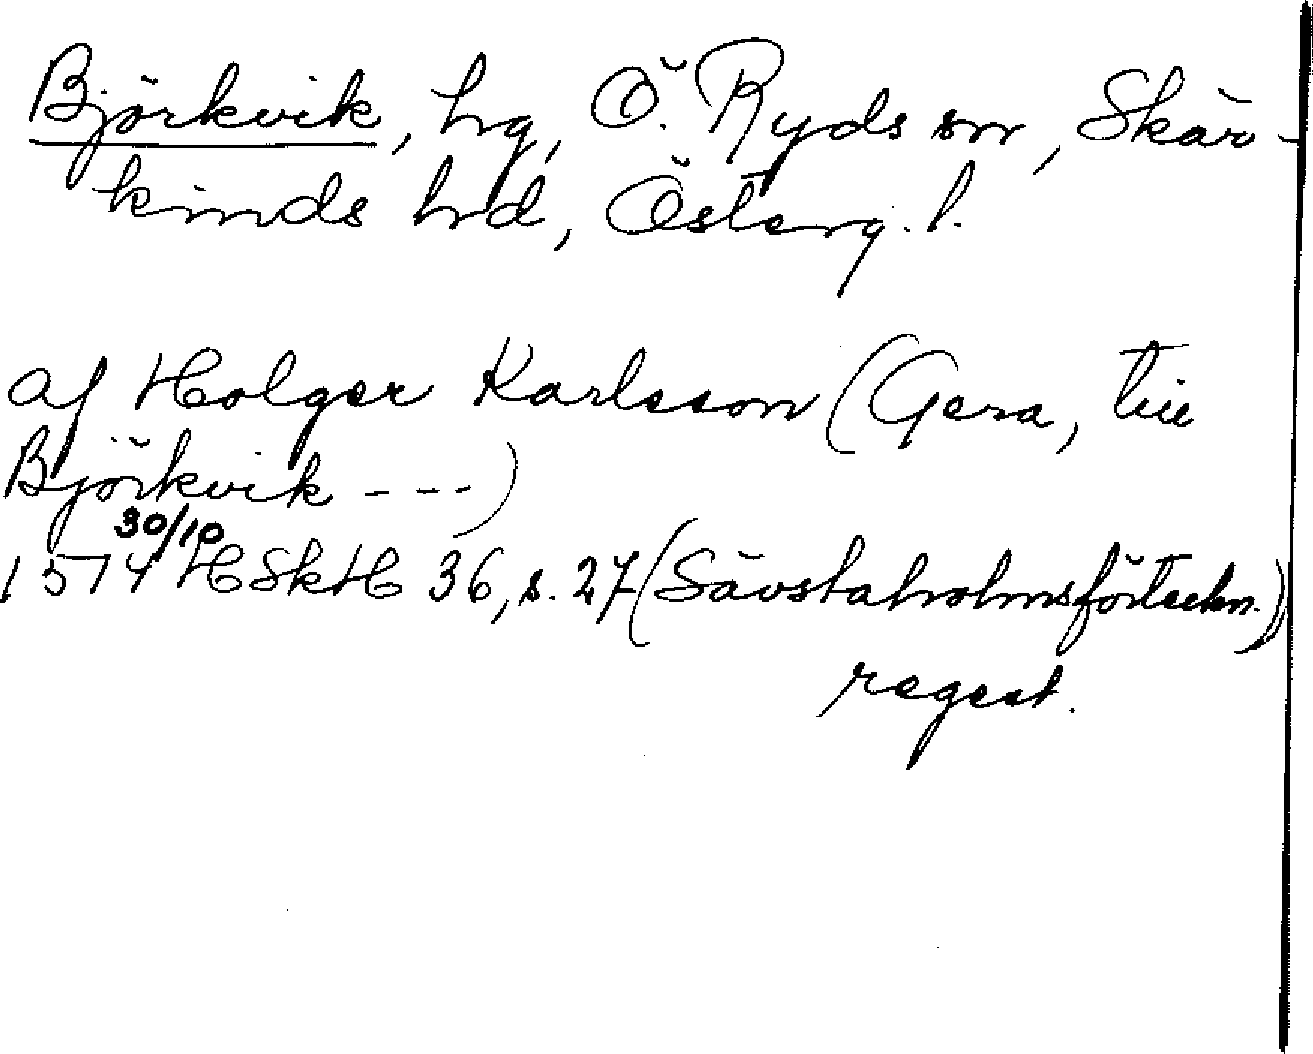 Björkvik, hrg, Ö. Ryds sn, Skär-
kinds hrd, Österg. l.
af Holger Karlsson (Gera, till
Björkvik ---)
30/10
1574 HSkH 36, s. 27 (Sävstaholmsförteckn.)
regest.